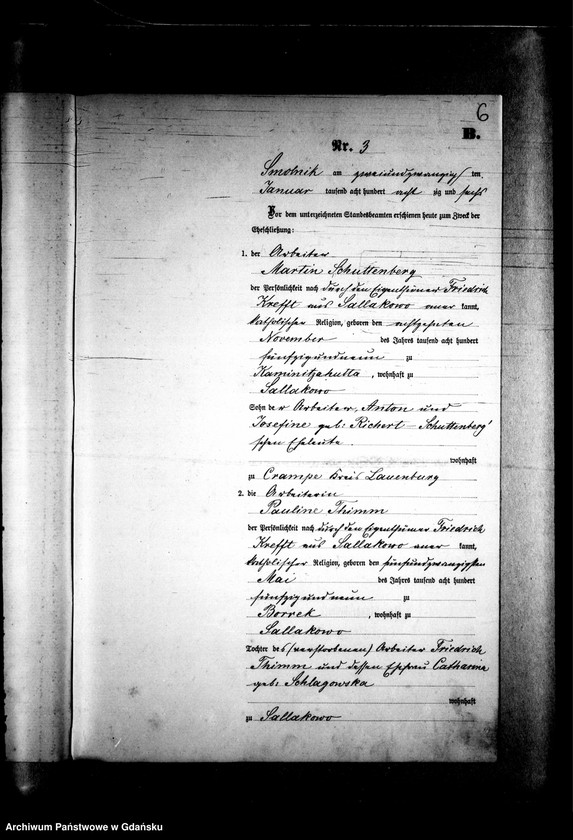 6
B.
Nr. 3
Smolnik am zweiundzwanzigsten
Januar tausend acht hundert acht zig und sechs
Vor dem unterzeichneten Standesbeamten erschienen heute zum Zweck der
Eheschließung:
1. der Arbeiter
Martin Schuttenberg
der Persönlichkeit nach durch den Eigenthümer Friedrich
Krefft aus Sallakowo aner kannt,
katholischer Religion, geboren den achtzehnten
November des Jahres tausend acht hundert
fünfzig und neun zu
Kaminitzahutta, wohnhaft zu
Sallakowo
Sohn der Arbeiter Anton und
Josefine geb: Richert - Schuttenberg'
schen Eheleute.
wohnhaft
zu Crampe Kreis Lauenburg
2. die Arbeiterin
Pauline Thimm
der Persönlichkeit nach durch den Eigenthümer Friedrich
Krefft aus Sallakowo aner kannt,
katholischer Religion, geboren den fünfundzwanzigsten
Mai des Jahres tausend acht hundert
fünfzig und neun zu
Borrek, wohnhaft zu
Sallakowo
Tochter des (verstorbenen) Arbeiter Friedrich
Thimm und dessen Ehefrau Catharina
geb: Schlagowska
wohnhaft
zu Sallakowo
Archiwum Państwowe w Gdańsku